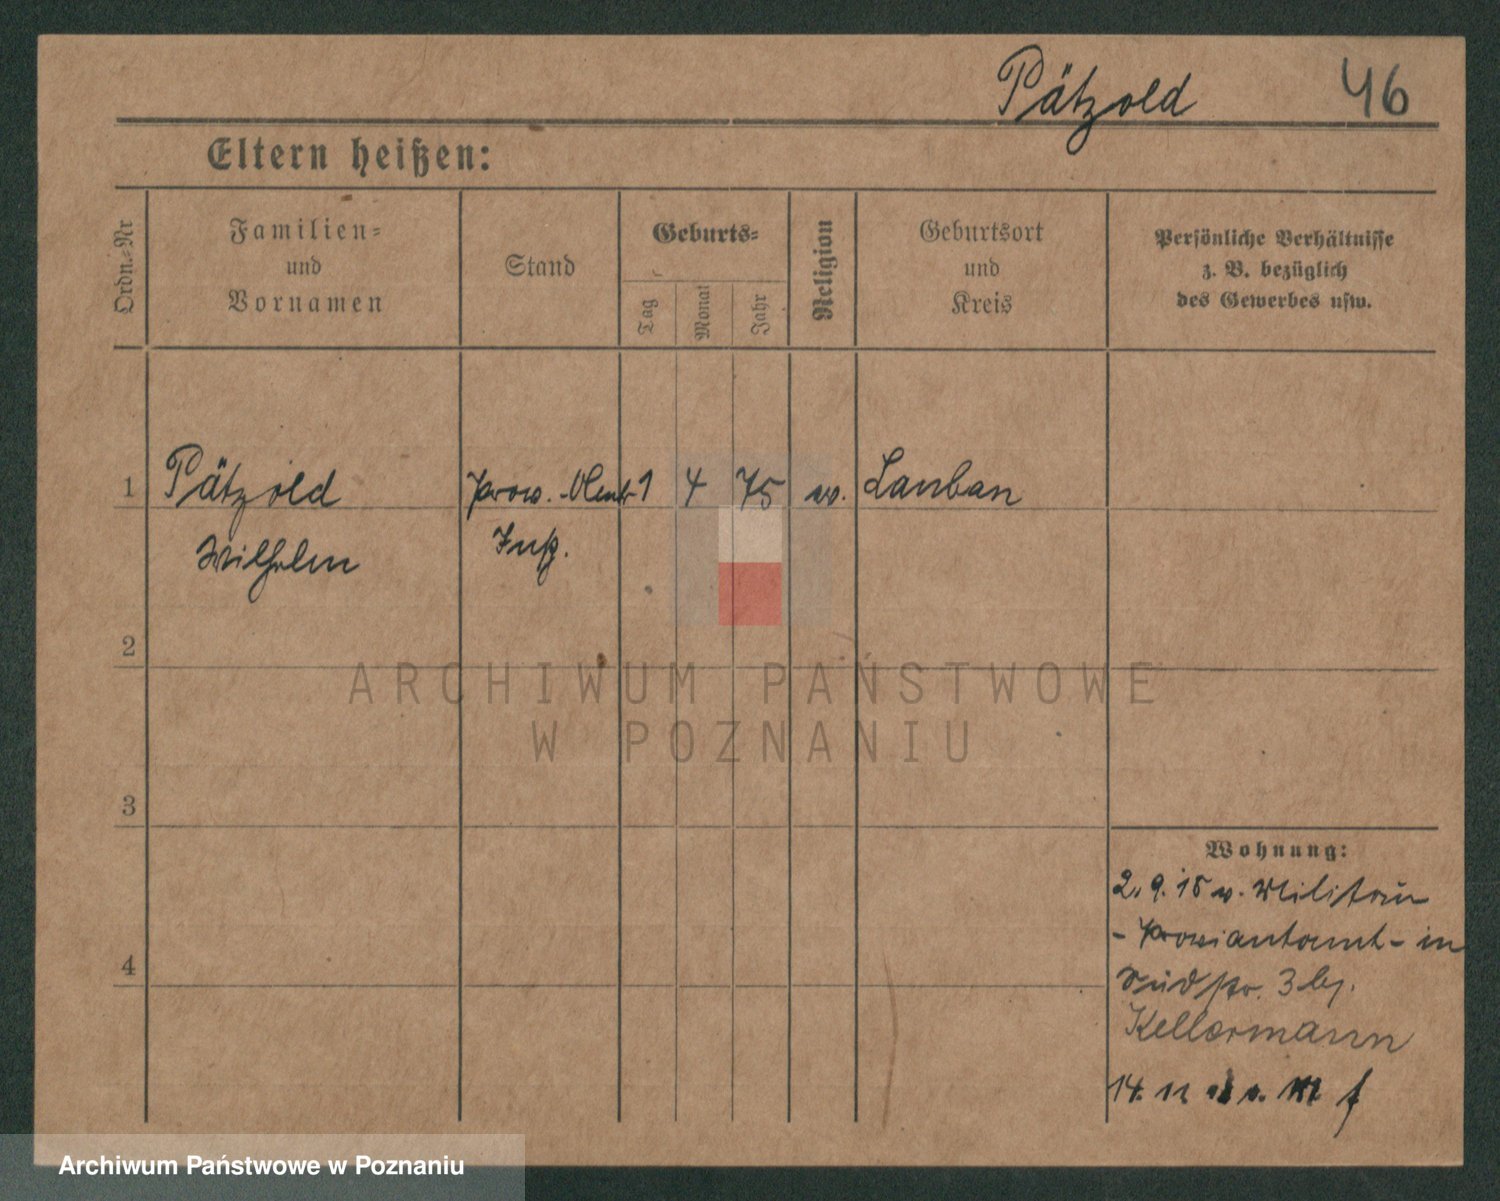 Pätzold 46
Eltern heißen:
Ordn.-Nr
Familien-
und
Vornamen
Stand
Geburts-
Tag
Monat
Jahr
Religion
Geburtsort
und
Kreis
Persönliche Verhältnisse
z. B. bezüglich
des Gewerbes usw.
1 Pätzold Prov. 1 4 75 Lauban
Wilhelm Insp.
2
3
4
Wohnung:
2. 9. 15 v. Militair
- Proviantamt - in
Südstr. 3 bj.
Kellermann
14. 11
ARCHIWUM PAŃSTWOWE
W POZNANIU
Archiwum Państwowe w Poznaniu